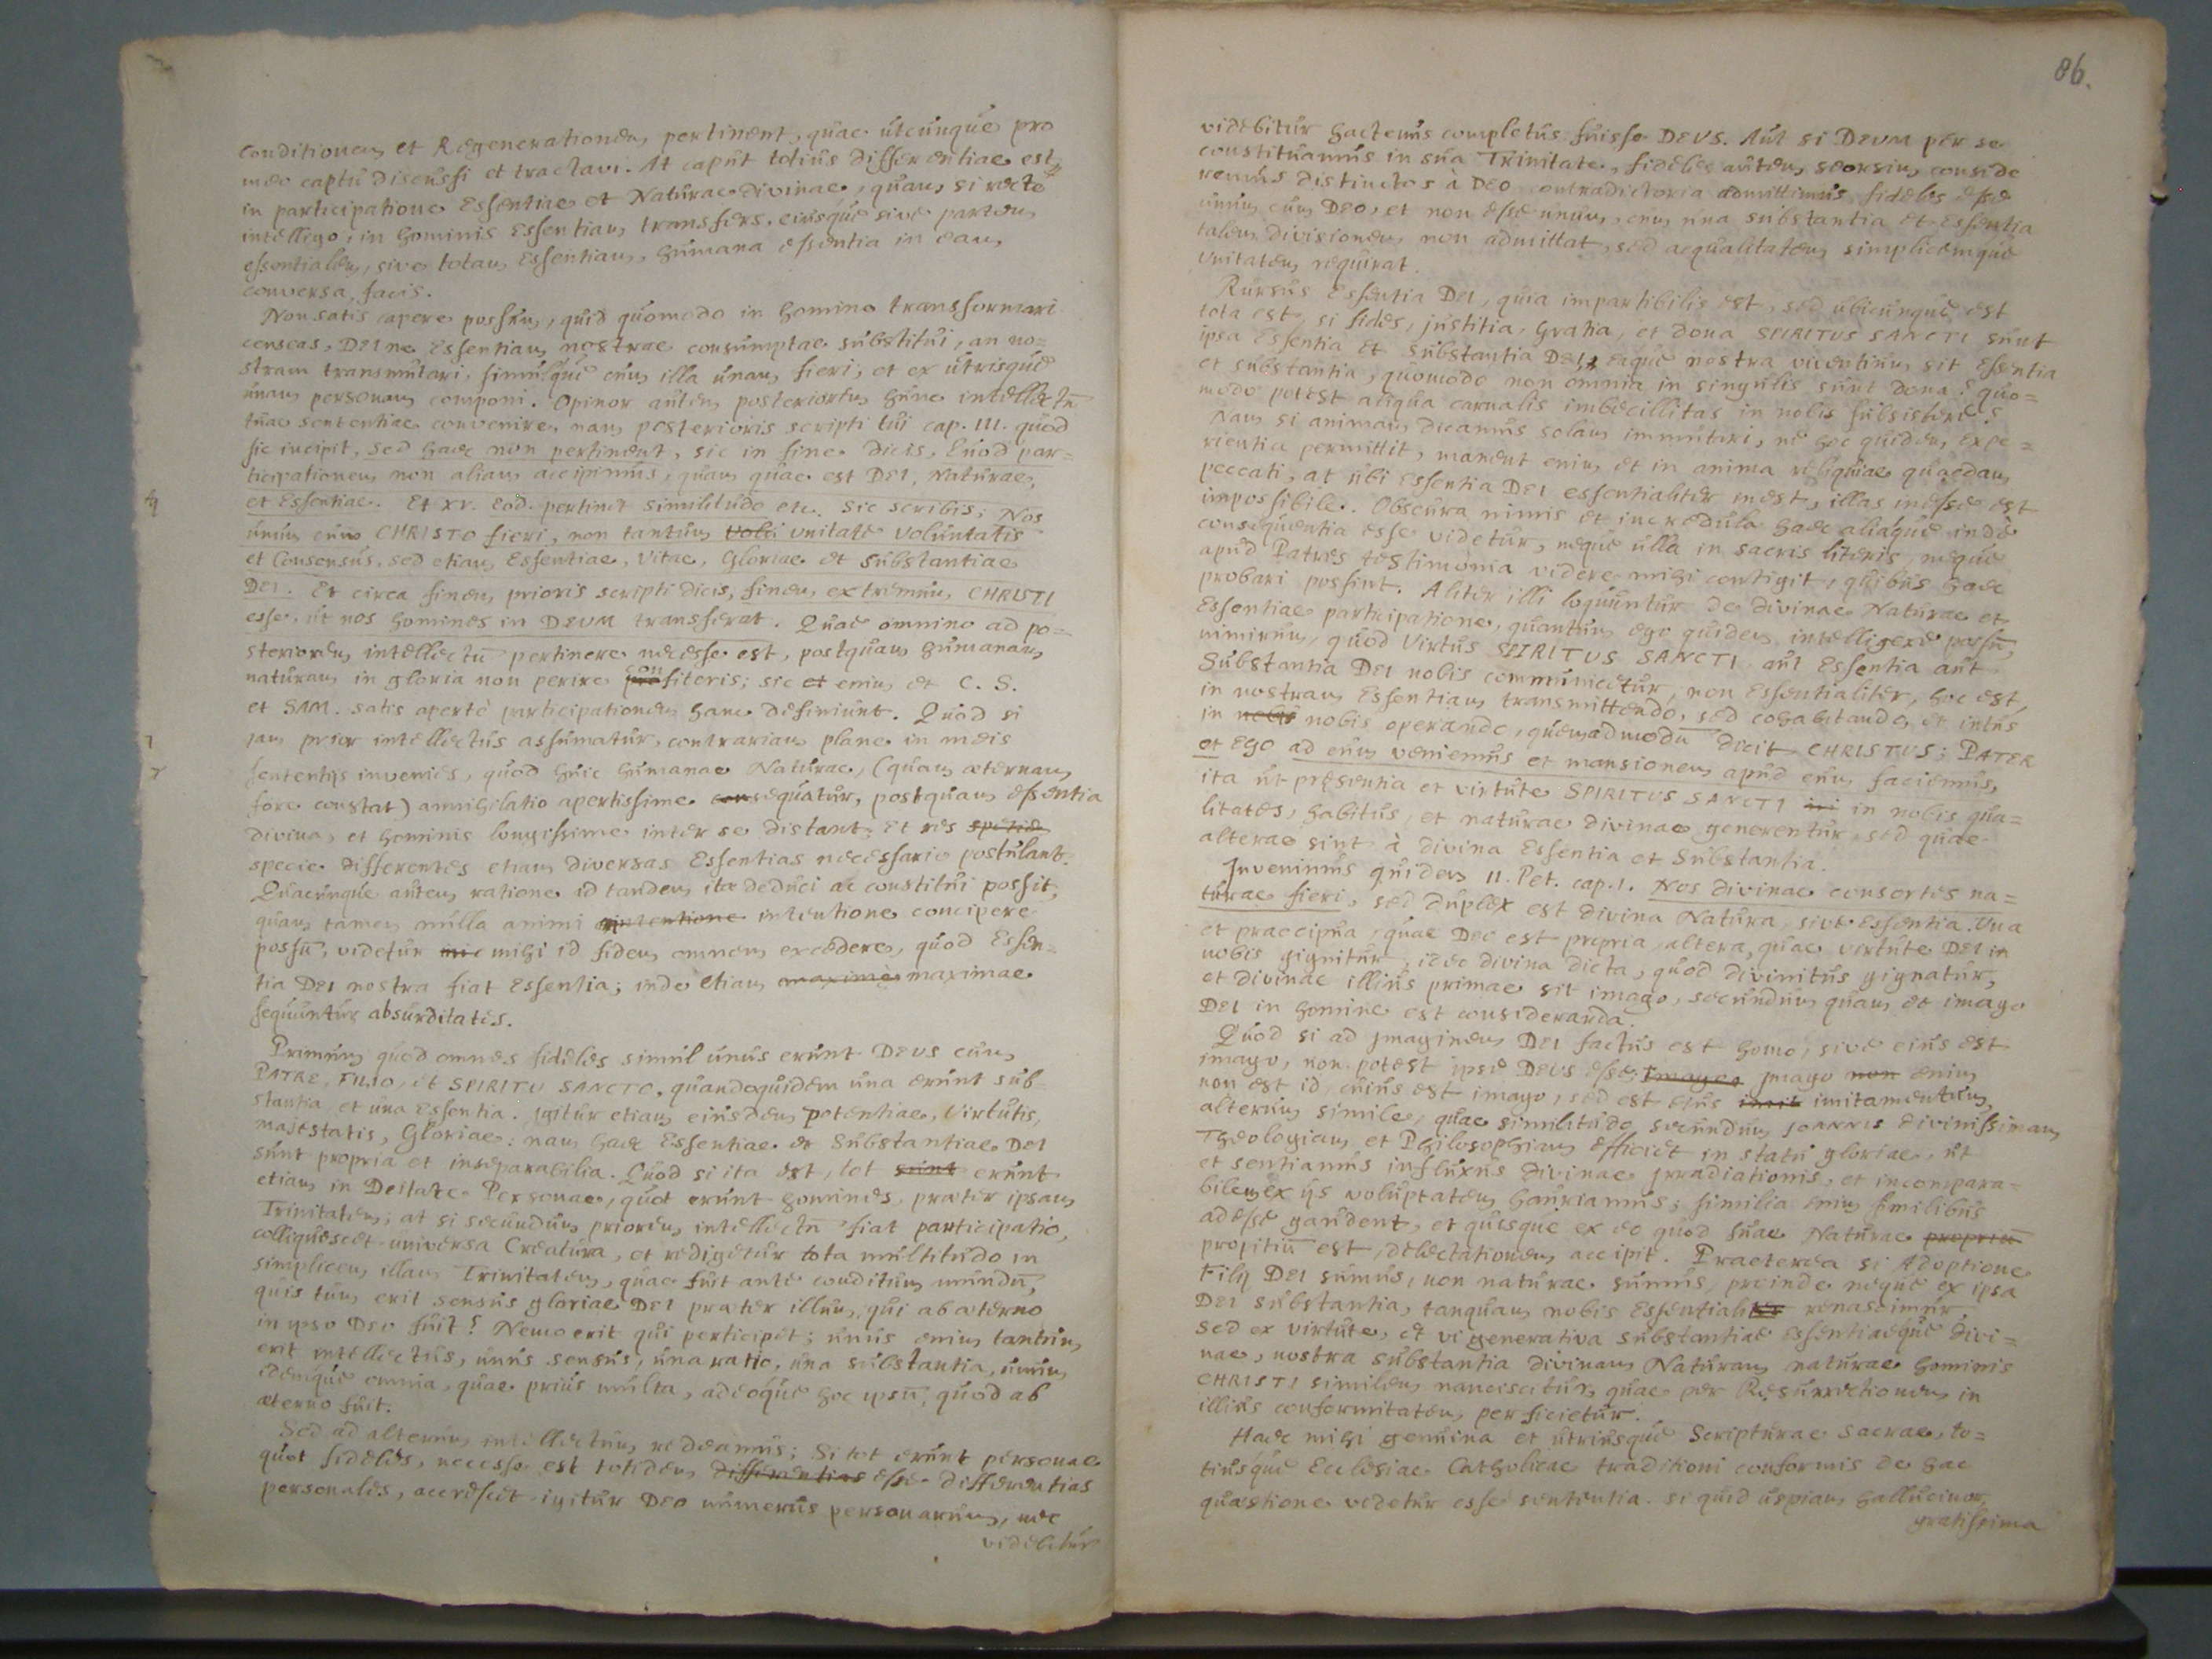 conditionem et Regenerationem pertinent, quae utcunque pro
meo captu discussi et tractavi. At caput totius differentiae est
in participatione Essentiae et Naturae divinae, quam, si recte
intelligo, in hominis Essentiam transfers, eiusque sive partem
essentialem, sive totam Essentiam, humana essentia in eam
conversa, facis.
Non satis capere possum, quid quomodo in homine transformari
censeas, DEI ne Essentiam nostrae consumptae substitui, an no=
stram transmutari, simulque cum illa unam fieri, et ex utrisque
unam personam componi. Opinor autem posteriorem hunc intellectū
tuae sententiae convenire, nam posterioris scripti tui cap. III. quod
sic incipit, sed haec non pertinent, sic in fine dicis, Quod par=
ticipationem non aliam accipimus, quam quae est DEI, Naturae,
et Essentiae. Et XV. eod. pertinet similitudo etc. sic scribis; Nos
unum cum CHRISTO fieri, non tantum volu unitate voluntatis
et Consensus, sed etiam Essentiae, Vitae, Gloriae et substantiae
DEI. Et circa finem prioris scripti dicis, finem extremum CHRISTI
esse, ut nos homines in DEUM transferat. Quae omnino ad po=
steriorem intellectū pertinere necesse est, postquam humanam
naturam in gloria non perire confiteris; sic et enim et C. S.
et SAM. satis apertè participationem hanc definiunt. Quod si
jam prior intellectus assumatur, contrariam plane in meis
sententijs invenies, quod huic humanae Naturae, (quam æternam
fore constat) annihilatio apertissime consequatur, postquam essentia
divina, et hominis longissime inter se distant, et res specie
specie differentes etiam diversas Essentias necessario postulant.
Quacunque autem ratione id tandem ita deduci ac constitui possit,
quam tamen nulla animi intentione intentione concipere
possū, videtur mihi id fidem omnem excedere, quod Essen=
tia DEI nostra fiat Essentia; inde etiam maximè maximae
sequuntur absurditates.
Primum quod omnes fideles simul unus erunt DEUS cum
PATRE, FILIO, et SPIRITU SANCTO, quandoquidem una erunt sub=
stantia et una Essentia. Igitur etiam eiusdem potentiae, Virtutis,
majestatis, Gloriae: nam haec Essentiae et Substantiae DEI
sunt propria et inseparabilia. Quod si ita est, tot sunt erunt
etiam in Deitate Personae, quot erunt homines, præter ipsam
Trinitatem; at si secundum priorem intellectū fiat participatio,
colliquescet universa Creatura, et redigetur tota multitudo in
simplicem illam Trinitatem, quae fuit ante conditum mundū,
quis tum erit sensus gloriae DEI præter illum, qui ab æterno
in ipso DEO fuit? Nemo erit qui percipiet; unus enim tantum
erit intellectus, unus sensus, una ratio, una substantia, unum
idemque omnia, quae prius multa, adeoque hoc ipsū, quod ab
æterno fuit.
Sed ad alterum intellectum redeamus; Si tot erunt personae
quot fideles, necesse est totidem differentias esse differentias
personales, accrescet igitur DEO numerus personarum, nec
videbitur
86.
videbitur hactenus completus fuisse DEUS. Aut si DEUM per se
constituamus in sua Trinitate, fideles autem seorsim conside
remus distinctos à DEO contradictoria admittimus, fideles esse
unum cum DEO, et non esse unum, cum una substantia et Essentia
talem divisionem non admittat, sed aequalitatem simplicemque
Unitatem requirat.
Rursus Essentia DEI, quia impartibilis est, sed ubicunque est
tota est, si fides, justitia, Gratia, et dona SPIRITUS SANCTI sunt
ipsa Essentia et substantia DEI, eaque nostra vicentinus sit Essentia
et substantia, quomodo non omnia in singulis sunt dona? quo=
modo potest aliqua carnalis imbecillitas in nobis subsistere?
Nam si animam dicamus solam immutari, ne hoc quidem expe=
rientia permittit, manent enim et in anima reliquiae quaedam
peccati, at ubi Essentia DEI essentialiter inest, illas inesse est
impossibile. Obscura nimis et incredula haec aliaque inde
consequentia esse videtur, neque ulla in sacris literis, neque
apud Patres testimonia videre mihi contigit, quibus haec
probari possint. Aliter illi loquuntur de divinae Naturae et
Essentiae participatione, quantum ego quidem intelligere possū,
nimirum, quod Virtus SPIRITUS SANCTI aut Essentia aut
Substantia DEI nobis communicetur, non Essentialiter, hoc est,
in nostram Essentiam transmittendo, sed cohabitando, et intus
in nobis nobis operando, quemadmodū dicit CHRISTUS; PATER
et EGO ad eum veniemus et mansionem apud eum faciemus,
ita ut pręsentia et virtute SPIRITUS SANCTI in nobis qua=
litates, habitus, et naturae divinae generentur, sed quae
alterae sint à divina Essentia et Substantia.
Invenimus quidem II. Pet. cap. 1. Nos divinae consortes na=
turae fieri, sed duplex est divina Natura, sive Essentia. Una
et praecipua, quae DEI est propria, altera, quae virtute DEI in
nobis gignitur, ideo divina dicta, quod divinitus gignatur,
et divinae illius primae sit imago, secundum quam et imago
DEI in homine est consideranda.
Quod si ad Imaginem DEI factus est homo, sive eius est
imago, non potest ipse DEUS esse; Imago Imago non enim
non est id, cuius est imago, sed est eius imit imitamentum,
alterum simile, quae similitudo secundum JOANNIS divinissimam
Theologiam et Philosophiam efficiet in statu gloriae, ut
et sentiamus influxus divinae irradiationis, et incompara=
bilem ex ijs voluptatem hauriamus; similia enim similibus
adesse gaudent, et quisque ex eo quod suae Naturae propriū
propitiū est, delectationem accipit. Praeterea si Adoptione
Filij DEI sumus, non naturae sumus, proinde neque ex ipsa
DEI substantia, tanquam nobis Essentiali renascimur
sed ex virtute, et vi generativa substantiae essentiaeque divi=
nae, nostra substantia divinam Naturam naturae hominis
CHRISTI similem nanciscitur, quae per Resurrectionem in
illius conformitatem perficietur.
Haec mihi genuina et utriusque Scripturae sacrae, to=
tiusque Ecclesiae Catholicae traditioni conformis de hac
quæstione videtur esse sententia. si quid uspiam hallucinor,
gratissima